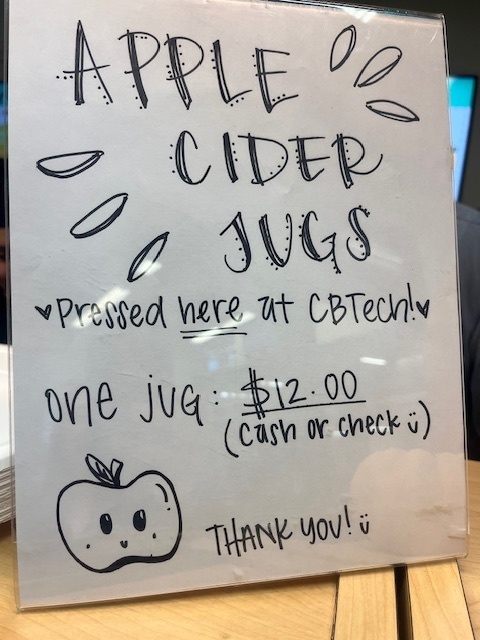 APPLE
CIDER
JUGS
♥Pressed here at CBTech!♥
one jug: $12.00
(cash or check ü)
THANK YOU! ü